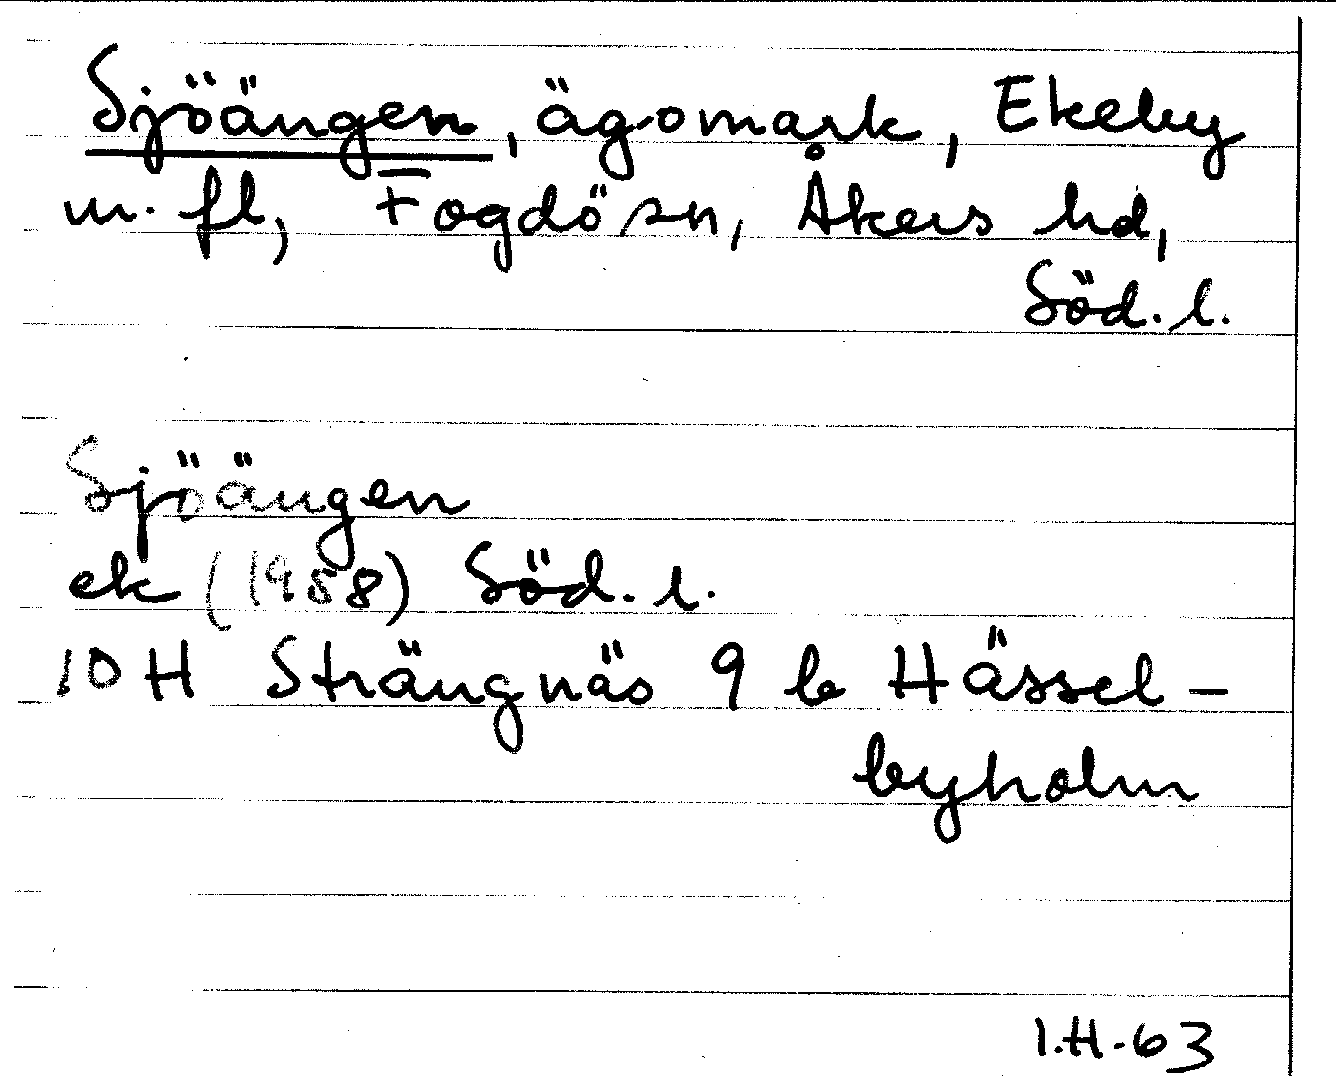 Sjöängen, ägomark, Ekeby
m. fl, Fogdö sn, Åkers hd,
Söd. l.
Sjöängen
ek (1958) Söd. l.
10 H Strängnäs 9 b Hässel-
byholm
I.H-63